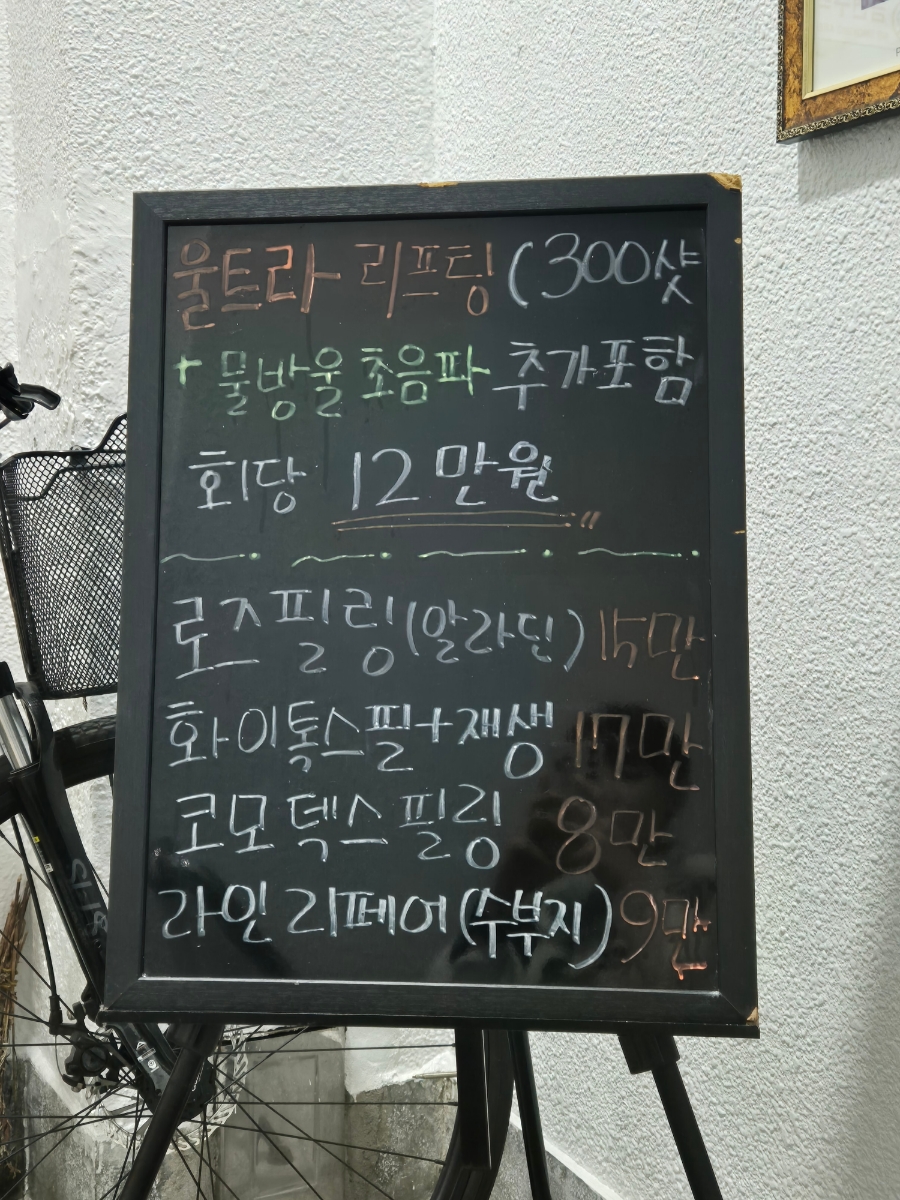 울트라 리프팅 (300샷
+ 물방울 초음파 추가포함
회당 12만원
로즈필링(알라딘) 15만
화이톡스필+재생 17만
코모덱스필링 8만
라인리페어(수부지) 9만